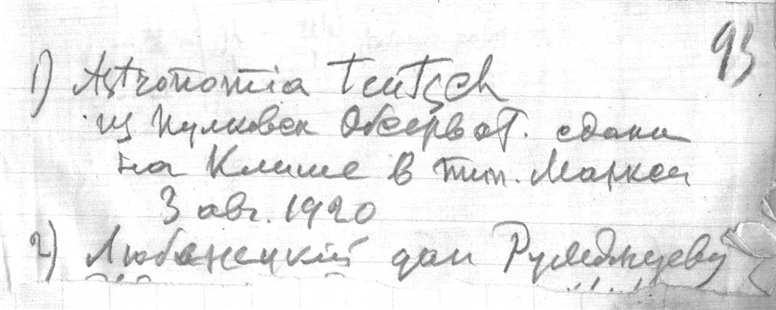 93
1) Astronomia teutsch
из Пулковск Обсерват. сдана
на Клише в тип. Маркса
3 авг. 1920
2) Любенецкий дан Румянцеву